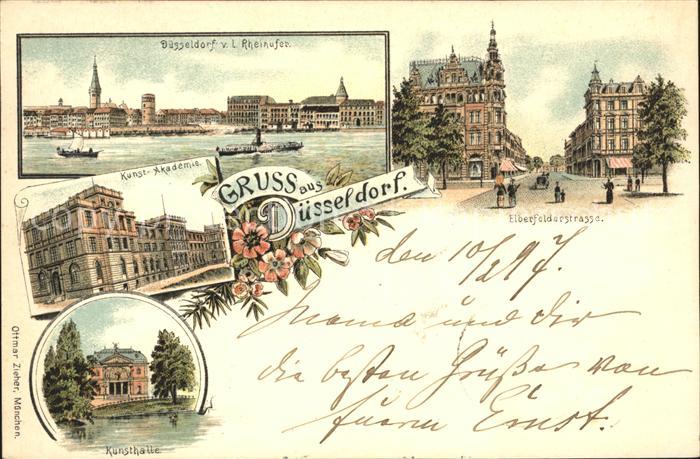 Düsseldorf v. l. Rheinufer.
Kunst-Akademie.
GRUSS aus
Düsseldorf.
Elberfelderstrasse.
Kunsthalle
Ottmar Zieher, München.
den 10/2 97.
Mama und dir
die besten Grüße von
Ernst.